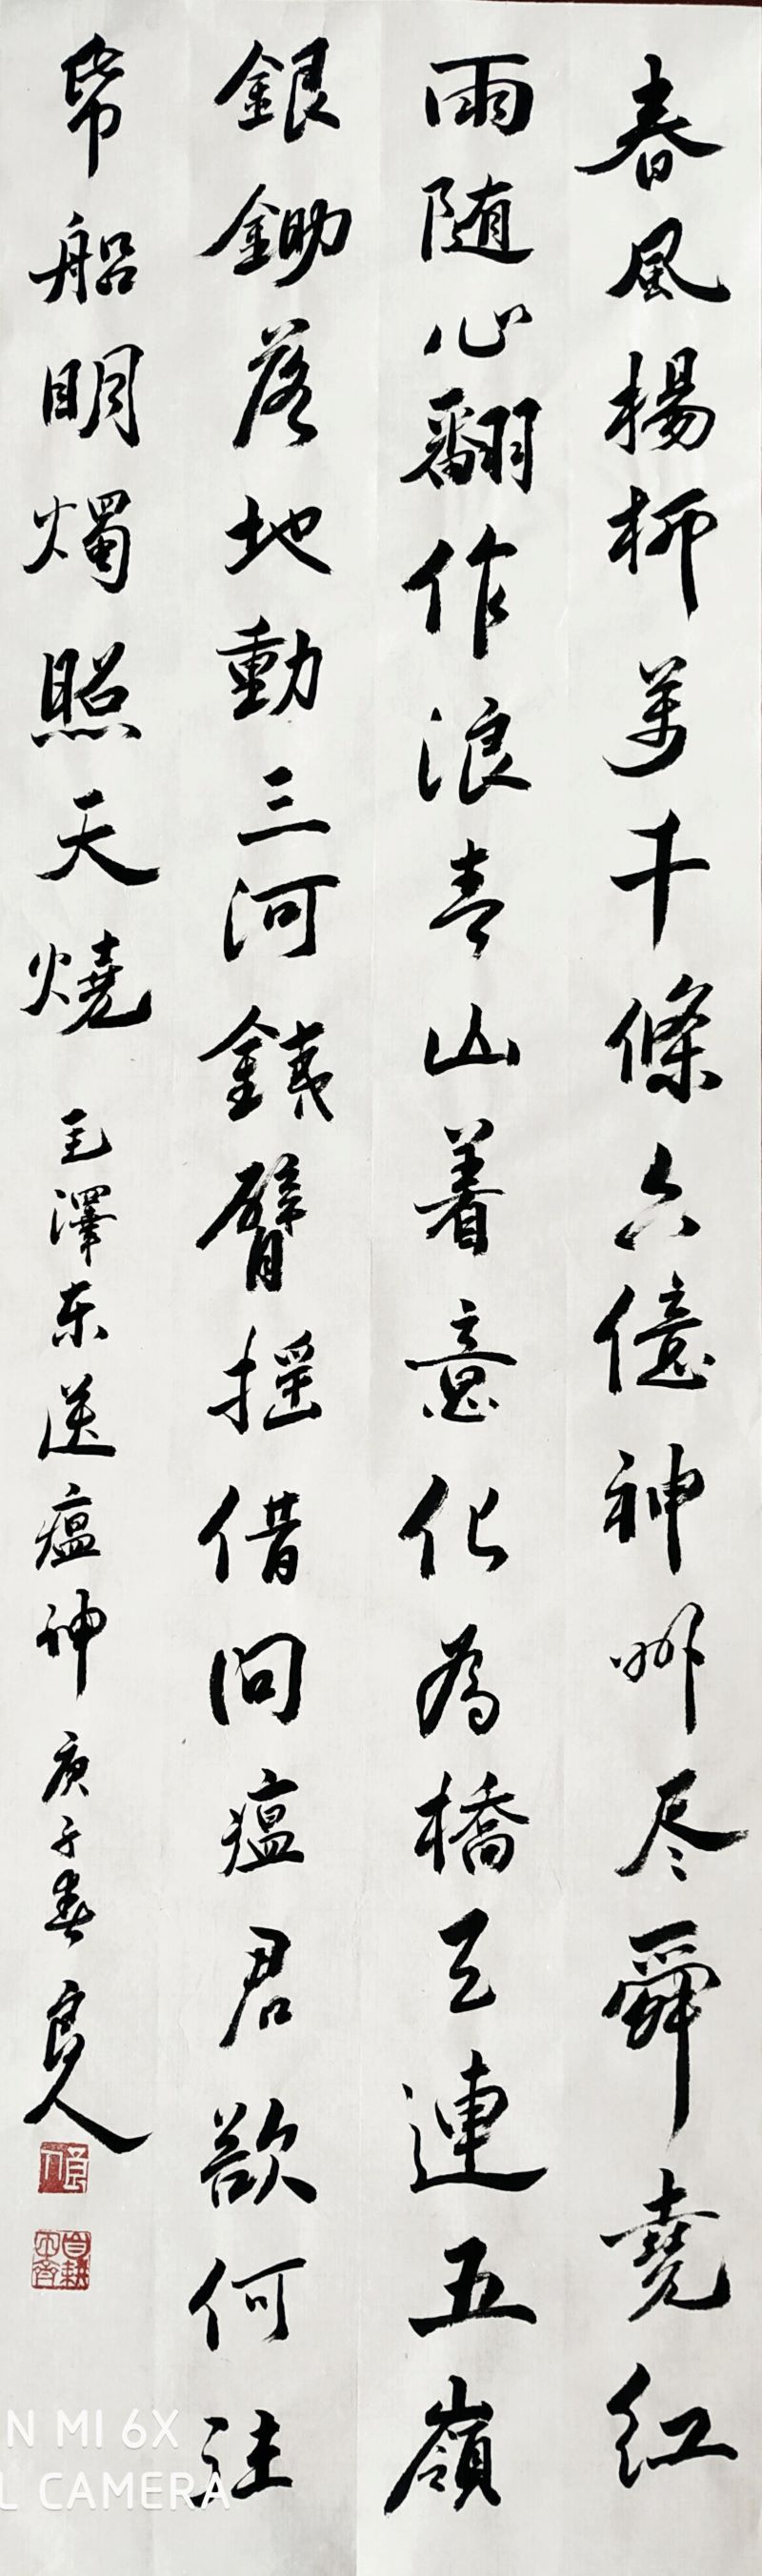 春風楊柳萬千條六億神州尽舜堯紅
雨随心翻作浪青山着意化為橋天連五嶺
銀鋤落地動三河鐵臂揺借問瘟君欲何往
帋船明燭照天燒
毛澤东送瘟神
庚子春
良人
N MI 6X
L CAMERA